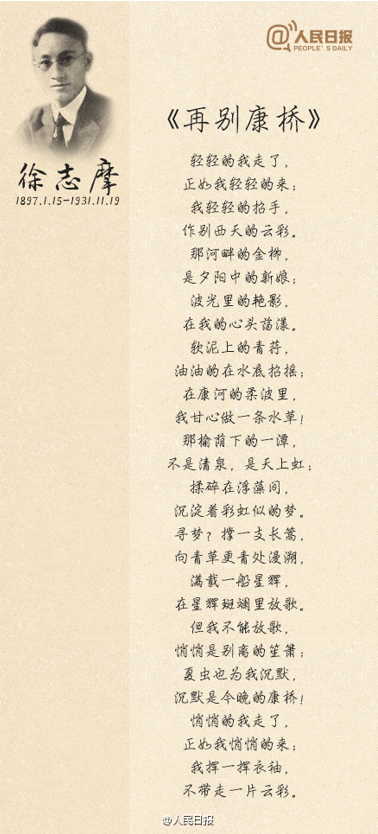 @人民日报
PEOPLE'S DAILY
徐志摩
1897.1.15-1931.11.19
《再别康桥》
轻轻的我走了，
正如我轻轻的来；
我轻轻的招手，
作别西天的云彩。
那河畔的金柳，
是夕阳中的新娘；
波光里的艳影，
在我的心头荡漾。
软泥上的青荇，
油油的在水底招摇；
在康河的柔波里，
我甘心做一条水草！
那榆荫下的一潭，
不是清泉，是天上虹；
揉碎在浮藻间，
沉淀着彩虹似的梦。
寻梦？撑一支长篙，
向青草更青处漫溯，
满载一船星辉，
在星辉斑斓里放歌。
但我不能放歌，
悄悄是别离的笙箫；
夏虫也为我沉默，
沉默是今晚的康桥！
悄悄的我走了，
正如我悄悄的来；
我挥一挥衣袖，
不带走一片云彩。
@人民日报